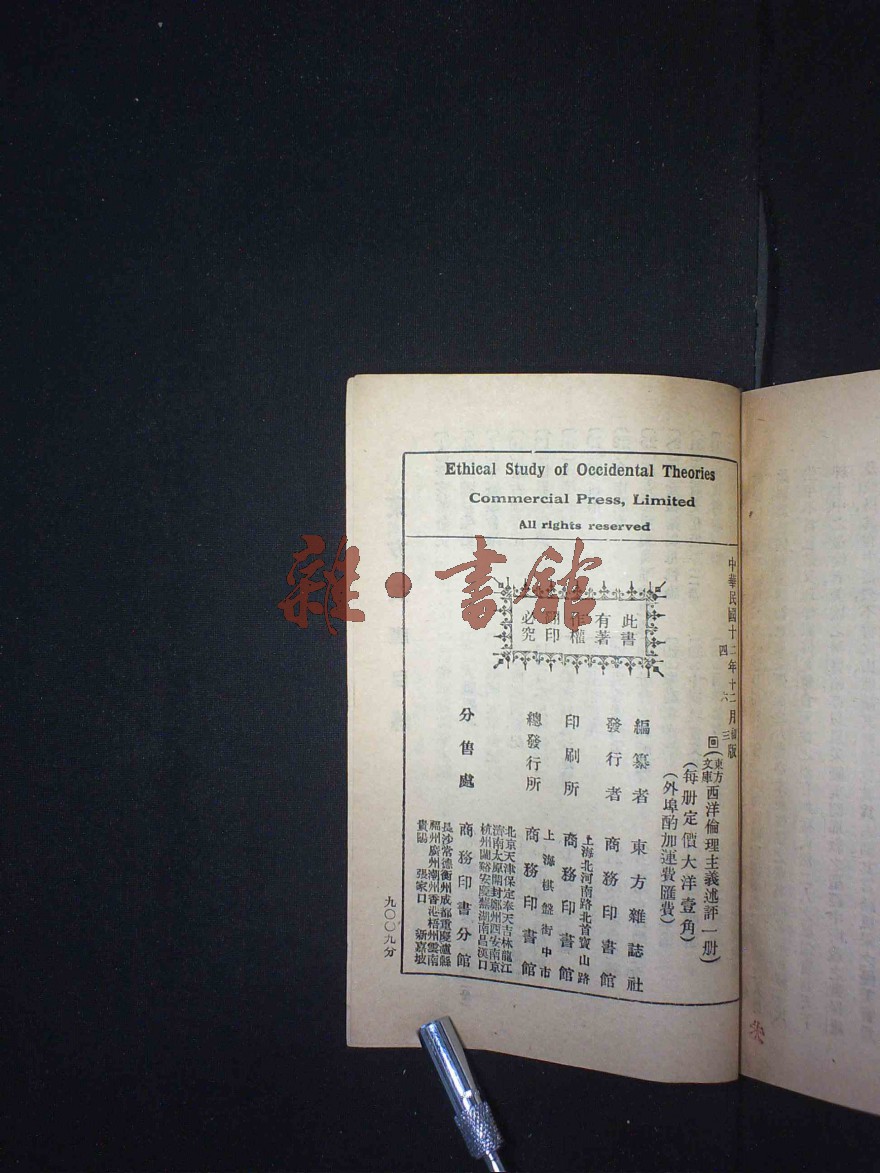 Ethical Study of Occidental Theories
Commercial Press, Limited
All rights reserved
此書
有著
作權
翻印
必究
中華民國十二年十二月初版
四 六 三
回(東方文庫)西洋倫理主義述評一册)
(每册定價大洋壹角)
(外埠酌加運費匯費)
編纂者 東方雜誌社
發行者 商務印書館
上海北河南路北首寶山路
印刷所 商務印書館
上海棋盤街中市
總發行所 商務印書館
分售處 商務印書分館
北京天津保定奉天吉林龍江
濟南太原開封鄭州西安南京
杭州蘭谿安慶蕪湖南昌漢口
長沙常德衡州成都重慶瀘縣
福州廣州潮州香港梧州雲南
貴陽 張家口 新嘉坡
九〇〇九分
雜·書館